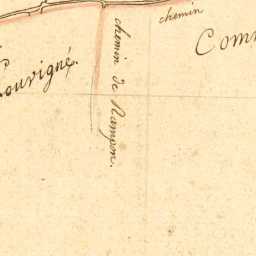 chemin
Com
Louvigné.
chemin de Rampon.